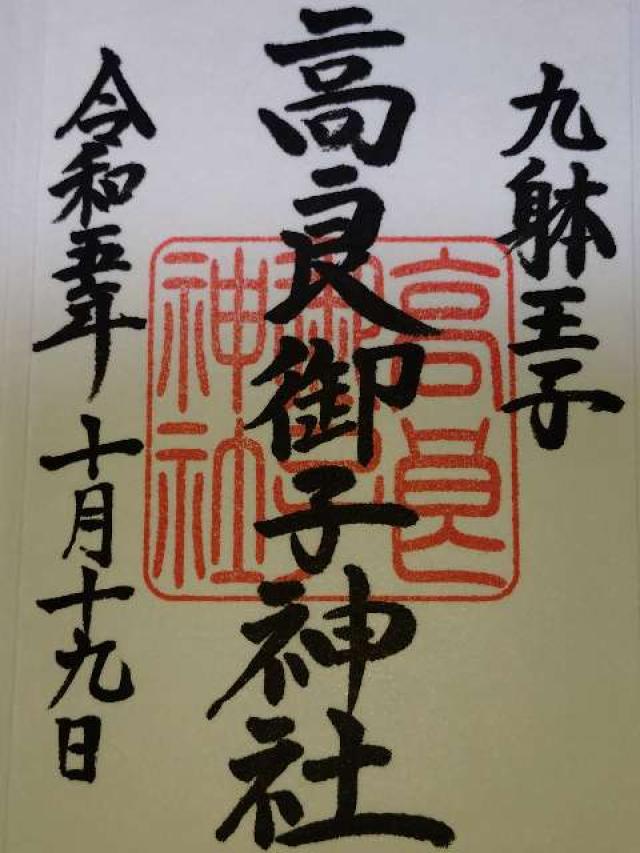 九躰王子
高良御子神社
高良御子神社
令和五年十月十九日